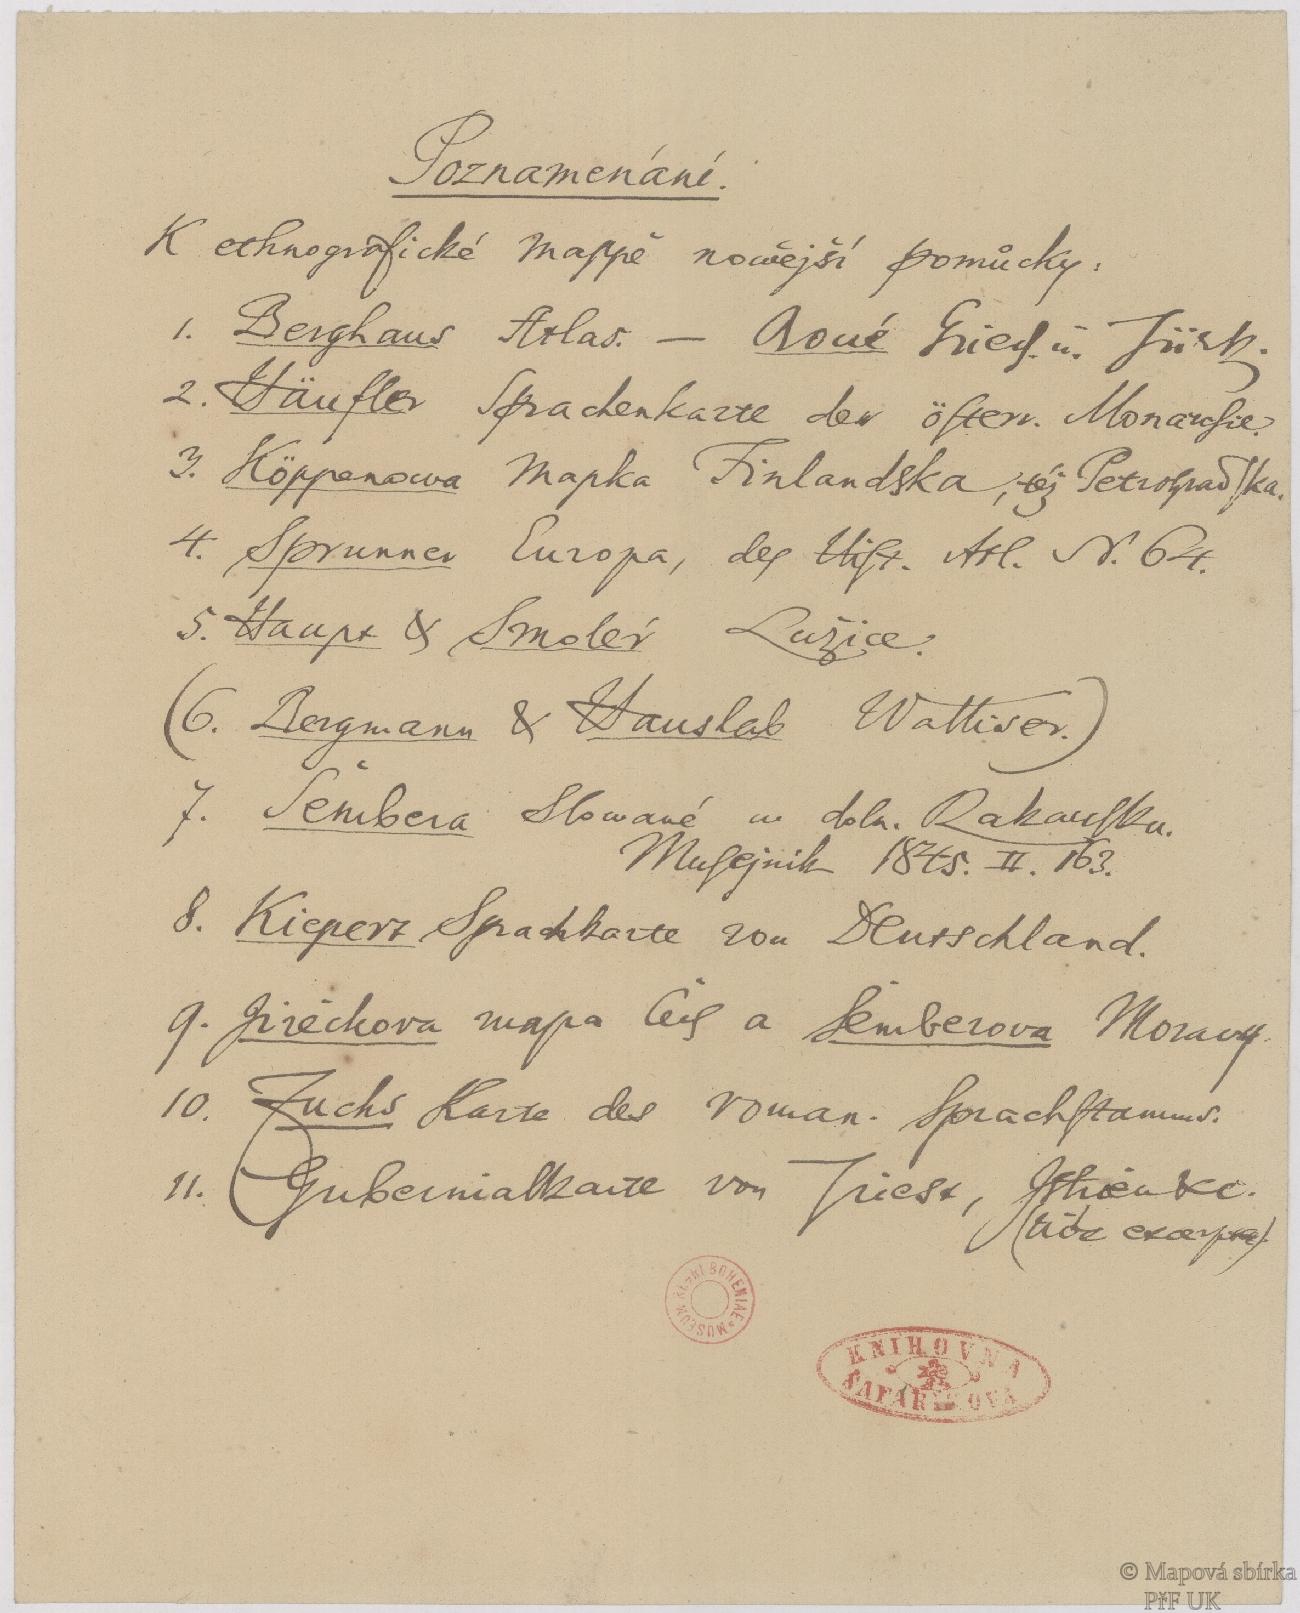 Poznamenání.
K ethnografické mappě nowější pomůcky:
1. Berghaus Atlas. — Boué Griech. u. Türk.
2. Häufler Sprachenkarte der österr. Monarchie.
3. Köppenowa mapka Finlandska, též Petrohradska.
4. Sprunner Europa, des Hist. Atl. N. 64.
5. Haupt & Smoleŕ Lužice.
(6. Bergmann & Hauslab Walliser.)
7. Šembera Slowané w doln. Rakausku.
Musejnik 1845. II. 163.
8. Kiepert Sprachkarte von Deutschland.
9. Jirečkova mapa Čech a Šemberova Moravy.
10. Fuchs Karte des roman. Sprachstamms.
11. Gubernialkarte von Triest, Istrien &c.
(vide excerpta)
MUSEUM REGNI BOHEMIAE
KNIHOVNA
ŠAFAŘÍKOVA
© Mapová sbírka
PřF UK